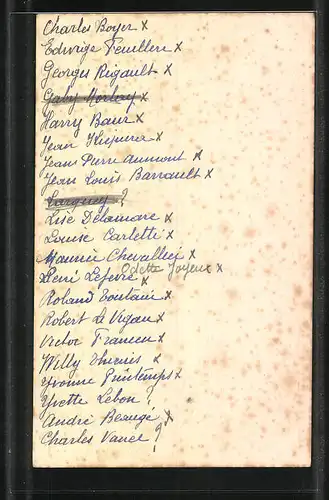 Charles Boyer x
Edwige Feuillere x
Georges Rigault x
Gaby Morlay x
Harry Baur x
Jean Kiepura x
Jean Pierre Aumont x
Jean Louis Barrault x
Larquey ?
Lise Delamare x
Louise Carletti x
Maurice Chevallier x
Odette Joyeux x
René Lefevre x
Roland Toutain x
Robert Le Vigan x
Victor Francen x
Willy Thunis x
Yvonne Printemps x
Yvette Lebon ?
André Beauge x
Charles Vanel ?